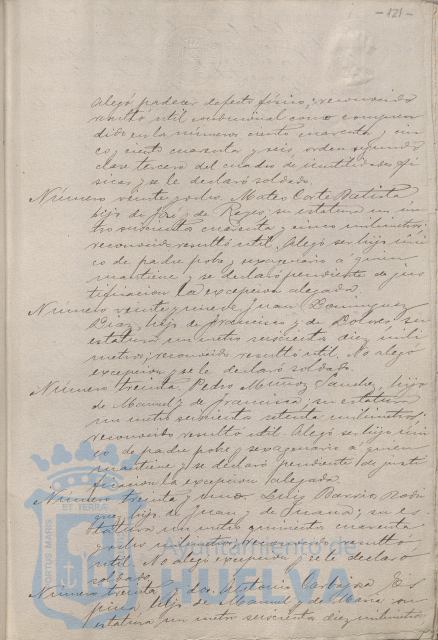 -121-
Alegó padecer defecto físico; reconocido
resultó útil condicional como compren
dido en los números ciento cuarenta y cin
co, ciento cuarenta y seis, orden segundo
clase tercera del cuadro de inutilidades fí
sicas, y se le declaró soldado.
Número veinte y ocho. Mateo Corte Batista
hijo de José y de Reyes, su estatura un me
tro seiscientos cuarenta y cinco milímetros;
reconocido resultó útil. Alegó ser hijo úni
co de padre pobre y sexagenario á quien
mantiene y se declaró pendiente de jus
tificación la excepción alegada.
Número veinte y nueve Juan Dominguez
Diaz, hijo de Francisco y de Dolores, su
estatura un metro seiscientos diez milí
metros; reconocido resultó útil. No alegó
excepción y se le declaró soldado.
Número treinta, Pedro Muñoz Sanchez, hijo
de Manuel y de Francisca, su estatura
un metro seiscientos setenta milímetros;
reconocido resultó útil. Alegó ser hijo úni
co de padre pobre y sexagenario á quien
mantiene y se declaró pendiente de justi
ficación la excepción alegada.
Número treinta y uno. Luis Rodri
guez, hijo de Juan y de Juana; su es
tatura un metro quinientos cuarenta
y ocho milímetros; reconocido resultó
útil. No alegó excepción y se le declaró
soldado.
Número treinta y dos. Antonio Carbajosa Es
pina, hijo de Manuel y de María, su
estatura un metro seiscientos diez milímetros
PORTUS MARIS
ET TERRÆ
Ayuntamiento de
HUELVA